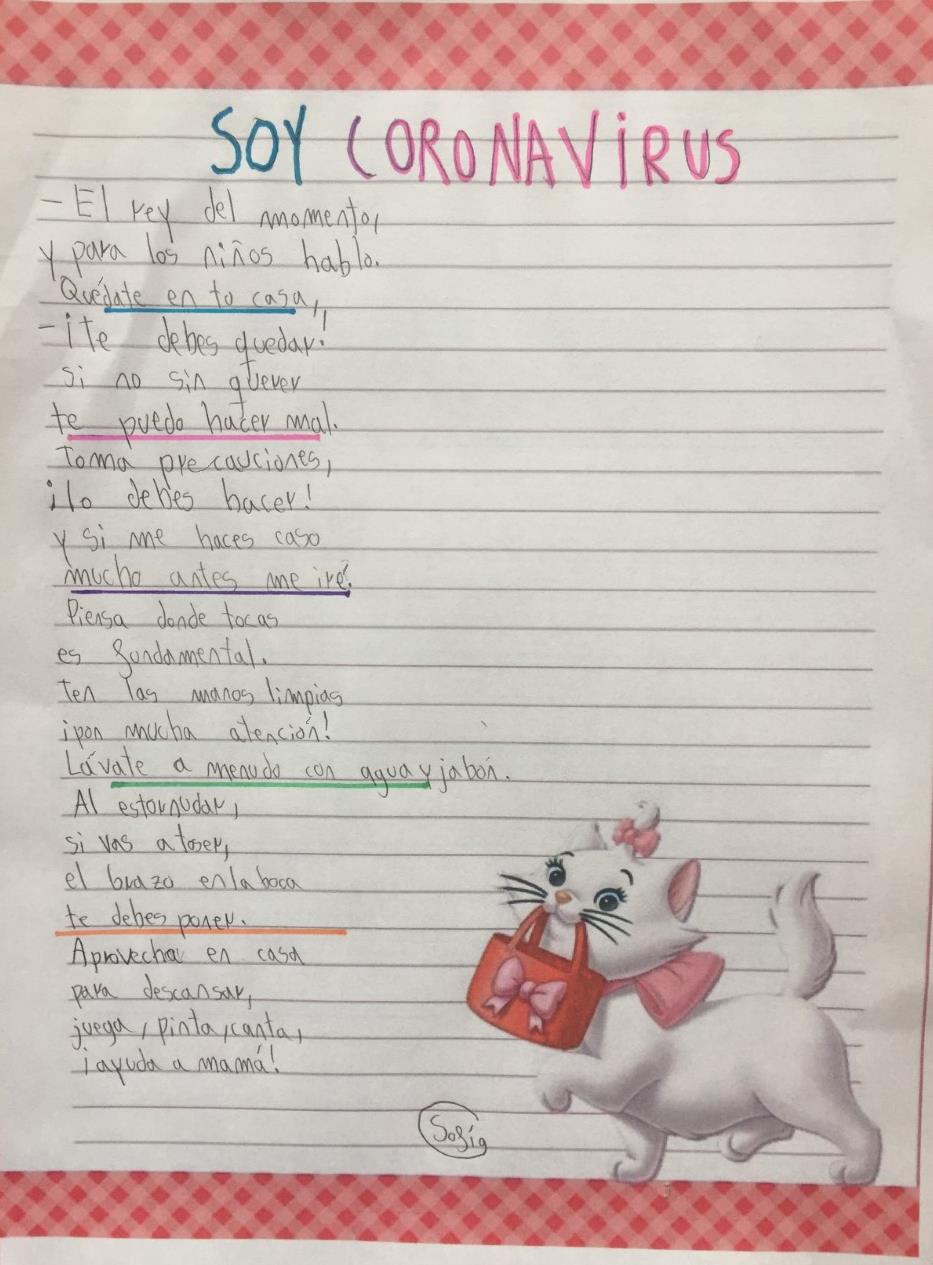 SOY CORONAVIRUS
- El rey del momento,
y para los niños hablo.
Quédate en tu casa,
- ¡te debes quedar!
si no sin querer
te puedo hacer mal.
Toma precauciones,
¡lo debes hacer!
y si me haces caso
mucho antes me iré.
Piensa donde tocas
es fundamental.
Ten las manos limpias
¡pon mucha atención!
Lávate a menudo con agua y jabón.
Al estornudar,
si vas a toser,
el brazo en la boca
te debes poner.
Aprovecha en casa
para descansar,
juega, pinta, canta,
¡ayuda a mamá!
Sofía